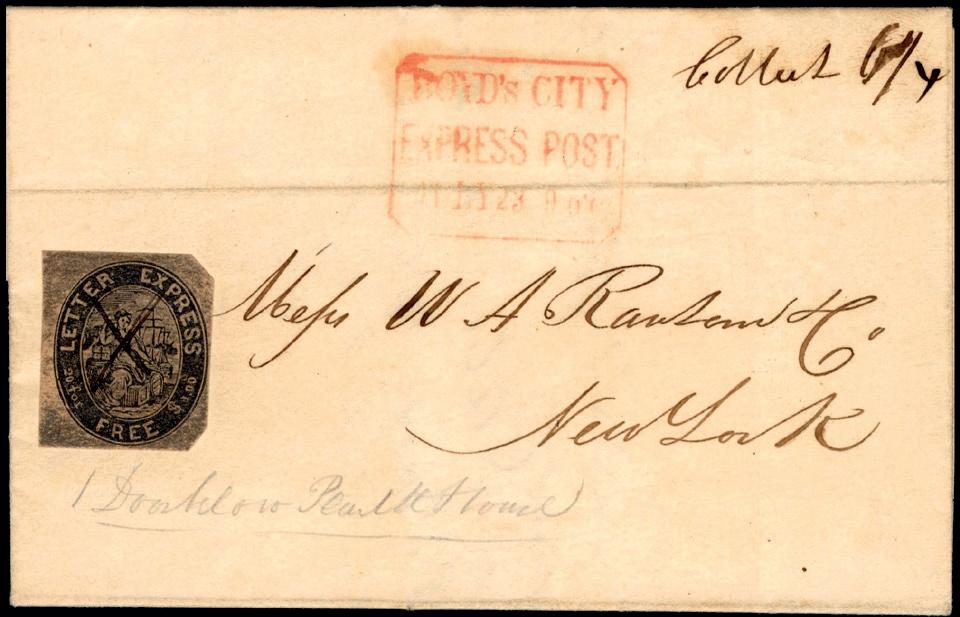 Collect 6/4
BOYD'S CITY
EXPRESS POST.
JULY 23
LETTER EXPRESS
FREE
20 FOR $1.00
Mess W A Ransom & Co.
New York
1 Door below Pearl St House